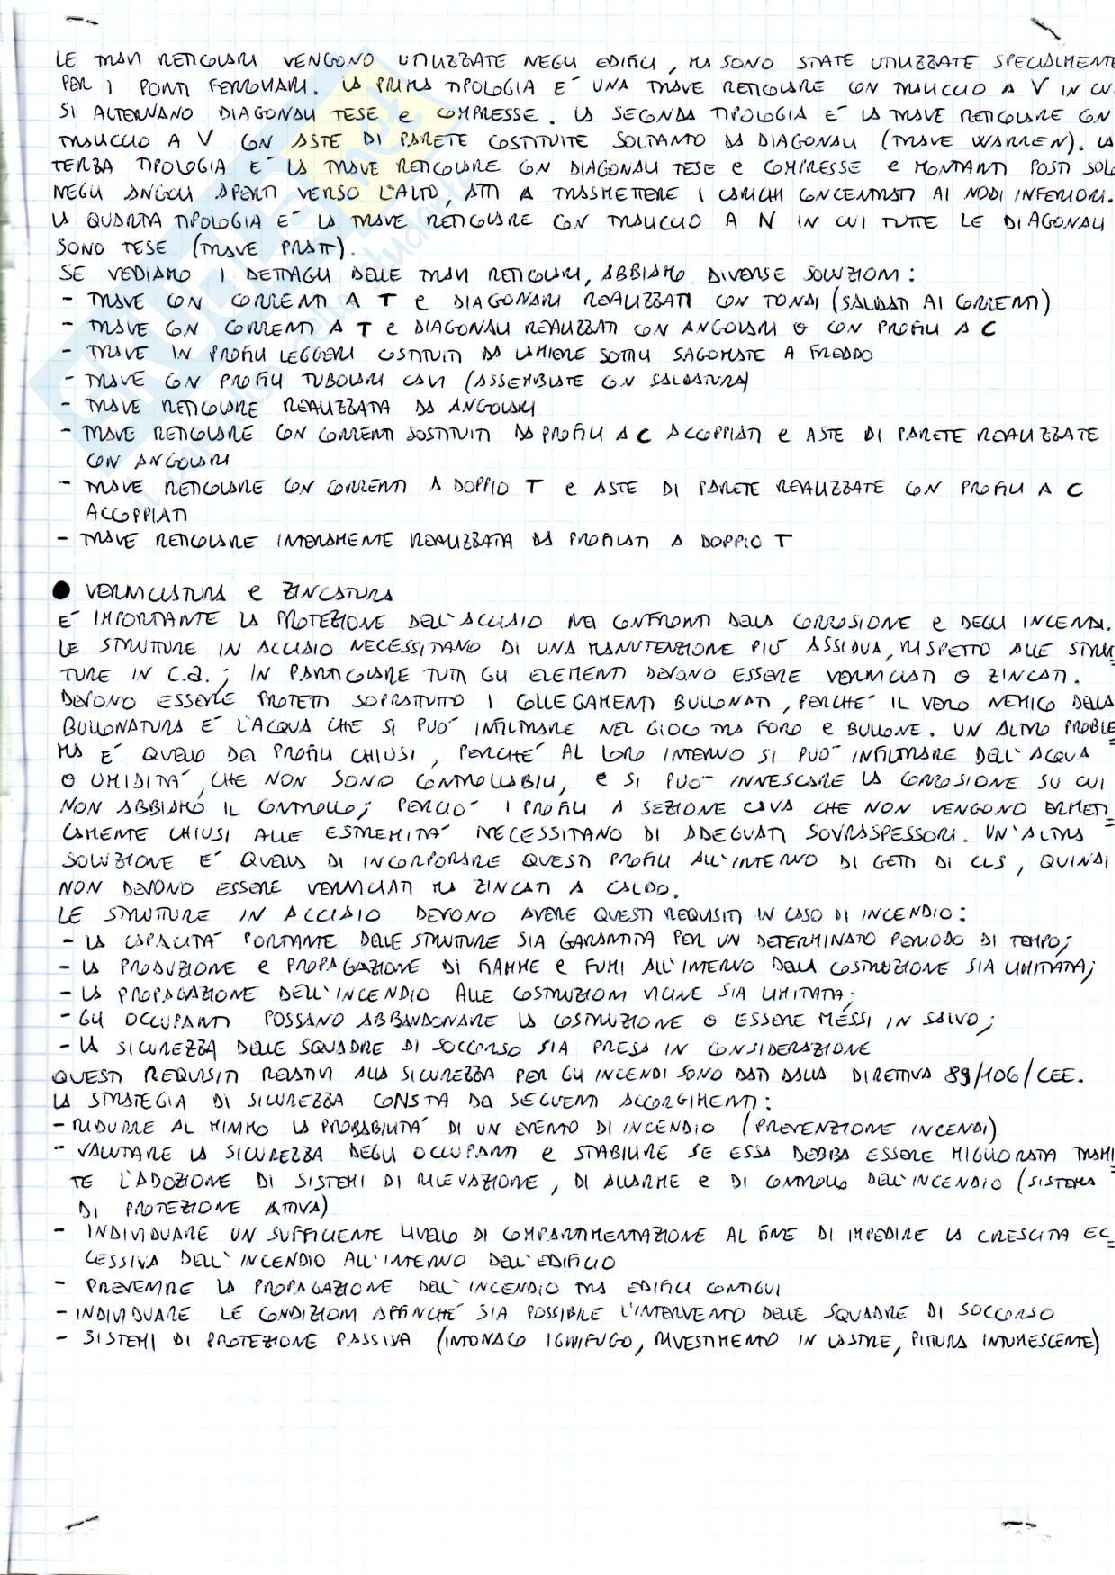 LE TRAVI RETICOLARI VENGONO UTILIZZATE NEGLI EDIFICI, MA SONO STATE UTILIZZATE SPECIALMENTE
PER I PONTI FERROVIARI. LA PRIMA TIPOLOGIA E' UNA TRAVE RETICOLARE CON TRALICCIO A V IN CUI
SI ALTERNANO DIAGONALI TESE e COMPRESSE. LA SECONDA TIPOLOGIA E' LA TRAVE RETICOLARE CON
TRALICCIO A V CON ASTE DI PARETE COSTITUITE SOLTANTO DA DIAGONALI (TRAVE WARREN). LA
TERZA TIPOLOGIA E' LA TRAVE RETICOLARE CON DIAGONALI TESE e COMPRESSE e MONTANTI POSTI SOLO
NEGLI ANGOLI APERTI VERSO L'ALTO, ATTI A TRASMETTERE I CARICHI CONCENTRATI AI NODI INFERIORI.
LA QUARTA TIPOLOGIA E' LA TRAVE RETICOLARE CON TRALICCIO A N IN CUI TUTTE LE DIAGONALI
SONO TESE (TRAVE PRATT).
SE VEDIAMO I DETTAGLI DELLE TRAVI RETICOLARI, ABBIAMO DIVERSE SOLUZIONI:
- TRAVE CON CORRENTI A T e DIAGONALI REALIZZATI CON TONDI (SALDATI AI CORRENTI)
- TRAVE CON CORRENTI A T e DIAGONALI REALIZZATI CON ANGOLARI O CON PROFILI A C
- TRAVE IN PROFILI LEGGERI COSTITUITI DA LAMIERE SOTTILI SAGOMATE A FREDDO
- TRAVE CON PROFILI TUBOLARI CAVI (ASSEMBLATE CON SALDATURA)
- TRAVE RETICOLARE REALIZZATA DA ANGOLARI
- TRAVE RETICOLARE CON CORRENTI SOSTITUITI DA PROFILI A C ACCOPPIATI e ASTE DI PARETE REALIZZATE
CON ANGOLARI
- TRAVE RETICOLARE CON CORRENTI A DOPPIO T e ASTE DI PARETE REALIZZATE CON PROFILI A C
ACCOPPIATI
- TRAVE RETICOLARE INTERAMENTE REALIZZATA DA PROFILATI A DOPPIO T
● VERNICIATURA e ZINCATURA
E' IMPORTANTE LA PROTEZIONE DELL'ACCIAIO NEI CONFRONTI DELLA CORROSIONE e DEGLI INCENDI.
LE STRUTTURE IN ACCIAIO NECESSITANO DI UNA MANUTENZIONE PIU' ASSIDUA, RISPETTO ALLE STRUT
TURE IN C.A.; IN PARTICOLARE TUTTI GLI ELEMENTI DEVONO ESSERE VERNICIATI O ZINCATI.
DEVONO ESSERE PROTETTI SOPRATUTTO I COLLEGAMENTI BULLONATI, PERCHE' IL VERO NEMICO DELLA
BULLONATURA E' L'ACQUA CHE SI PUO' INFILTRARE NEL GIOCO TRA FORO e BULLONE. UN ALTRO PROBLE=
MA E' QUELLO DEI PROFILI CHIUSI, PERCHE' AL LORO INTERNO SI PUO' INFILTRARE DELL'ACQUA
O UMIDITA', CHE NON SONO CONTROLLABILI, e SI PUO' INNESCARE LA CORROSIONE SU CUI
NON ABBIAMO IL CONTROLLO; PERCIO' I PROFILI A SEZIONE CAVA CHE NON VENGONO ERMETI=
CAMENTE CHIUSI ALLE ESTREMITA' NECESSITANO DI ADEGUATI SOVRASPESSORI. UN'ALTRA
SOLUZIONE E' QUELLA DI INCORPORARE QUESTI PROFILI ALL'INTERNO DI GETTI DI CLS, QUINDI
NON DEVONO ESSERE VERNICIATI MA ZINCATI A CALDO.
LE STRUTTURE IN ACCIAIO DEVONO AVERE QUESTI REQUISITI IN CASO DI INCENDIO:
- LA CAPACITA' PORTANTE DELLE STRUTTURE SIA GARANTITA PER UN DETERMINATO PERIODO DI TEMPO;
- LA PRODUZIONE e PROPAGAZIONE DI FIAMME e FUMI ALL'INTERNO DELLA COSTRUZIONE SIA LIMITATA;
- LA PROPAGAZIONE DELL'INCENDIO ALLE COSTRUZIONI VICINE SIA LIMITATA;
- GLI OCCUPANTI POSSANO ABBANDONARE LA COSTRUZIONE O ESSERE MESSI IN SALVO;
- LA SICUREZZA DELLE SQUADRE DI SOCCORSO SIA PRESA IN CONSIDERAZIONE
QUESTI REQUISITI RELATIVI ALLA SICUREZZA PER GLI INCENDI SONO DATI DALLA DIRETTIVA 89/106/CEE.
LA STRATEGIA DI SICUREZZA CONSTA DA SEGUENTI ACCORGIMENTI:
- RIDURRE AL MINIMO LA PROBABILITA' DI UN EVENTO DI INCENDIO (PREVENZIONE INCENDI)
- VALUTARE LA SICUREZZA DEGLI OCCUPANTI e STABILIRE SE ESSA DEBBA ESSERE MIGLIORATA TRAMI=
TE L'ADOZIONE DI SISTEMI DI RILEVAZIONE, DI ALLARME e DI CONTROLLO DELL'INCENDIO (SISTEMA
DI PROTEZIONE ATTIVA)
- INDIVIDUARE UN SUFFICIENTE LIVELLO DI COMPARTIMENTAZIONE AL FINE DI IMPEDIRE LA CRESCITA EC=
CESSIVA DELL'INCENDIO ALL'INTERNO DELL'EDIFICIO
- PREVENIRE LA PROPAGAZIONE DELL'INCENDIO TRA EDIFICI CONTIGUI
- INDIVIDUARE LE CONDIZIONI AFFINCHE' SIA POSSIBILE L'INTERVENTO DELLE SQUADRE DI SOCCORSO
- SISTEMI DI PROTEZIONE PASSIVA (INTONACO IGNIFUGO, RIVESTIMENTO IN LASTRE, PITTURA INTUMESCENTE)